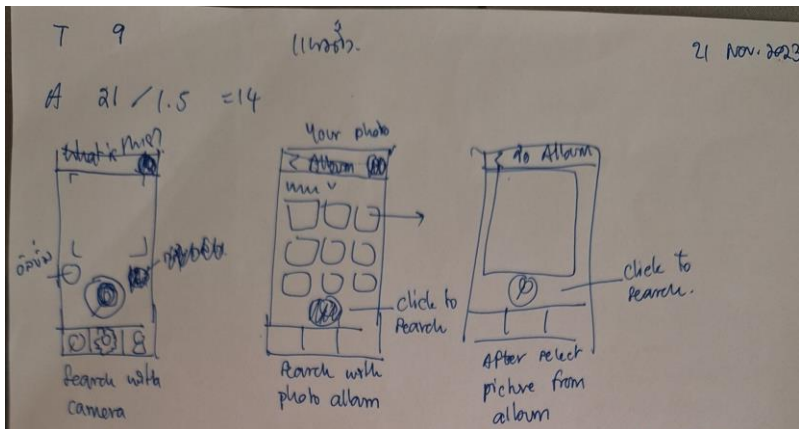 T 9
21 Nov. 2023
A 21 / 1.5 = 14
What is this?
Search with
camera
Your photo
< Album
click to
search
Search with
photo album
< To Album
click to
search.
After select
picture from
album